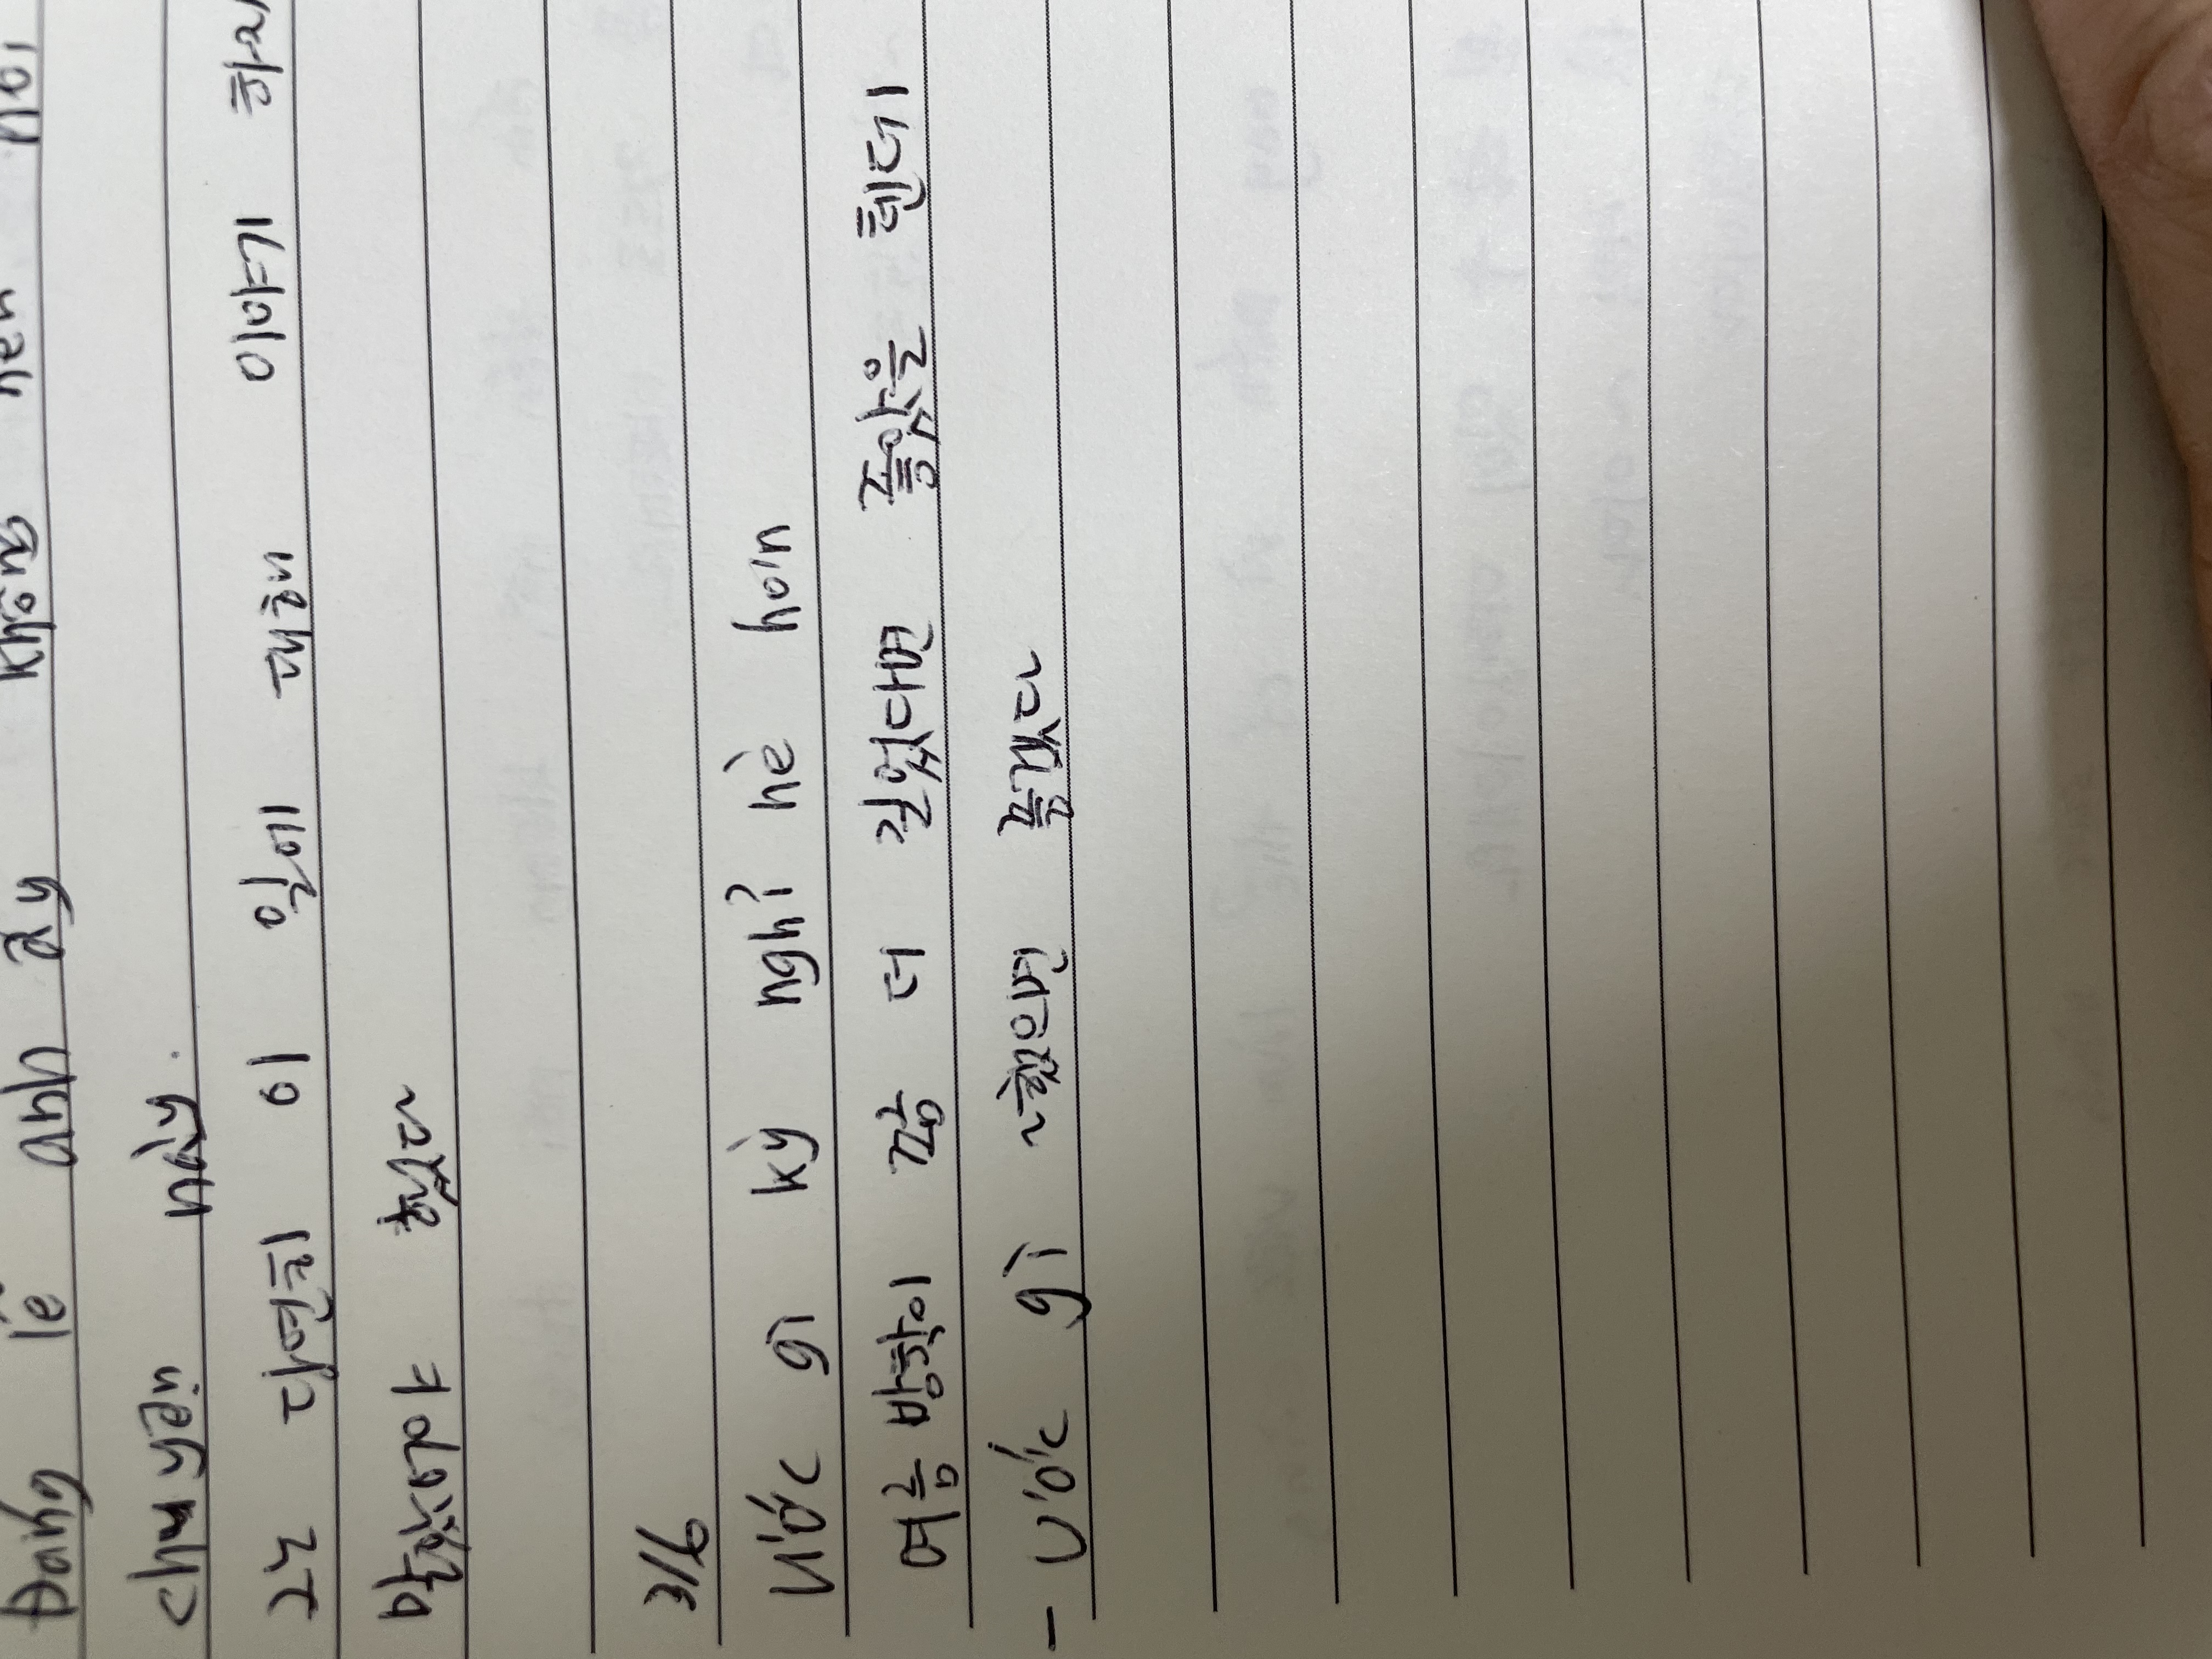 Đáng lẽ anh ấy không nên nói
chuyện này.
그는 당연히 이 일에 대해 이야기 하지
말았어야 했다
3/6
Ước gì kỳ nghỉ hè hơn
여름 방학이 좀 더 길었다면 좋았을 텐데
- Ước gì ~했으면 좋겠다